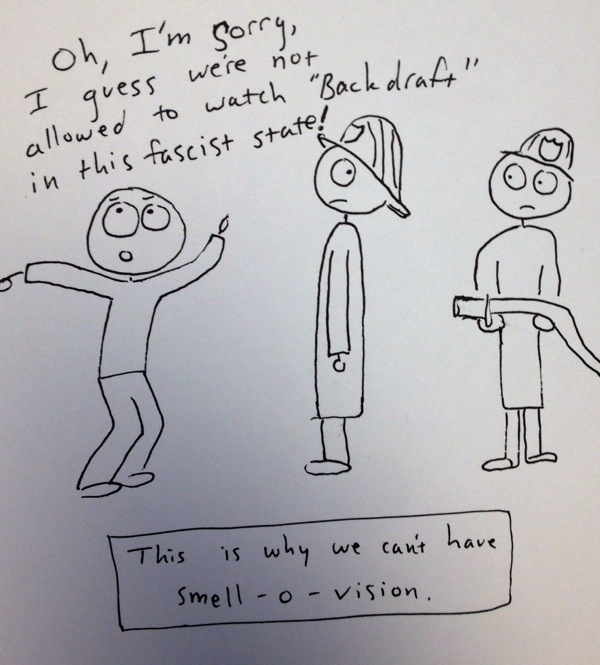 Oh, I'm sorry,
I guess we're not
allowed to watch "Backdraft"
in this fascist state!
This is why we can't have
smell-o-vision.